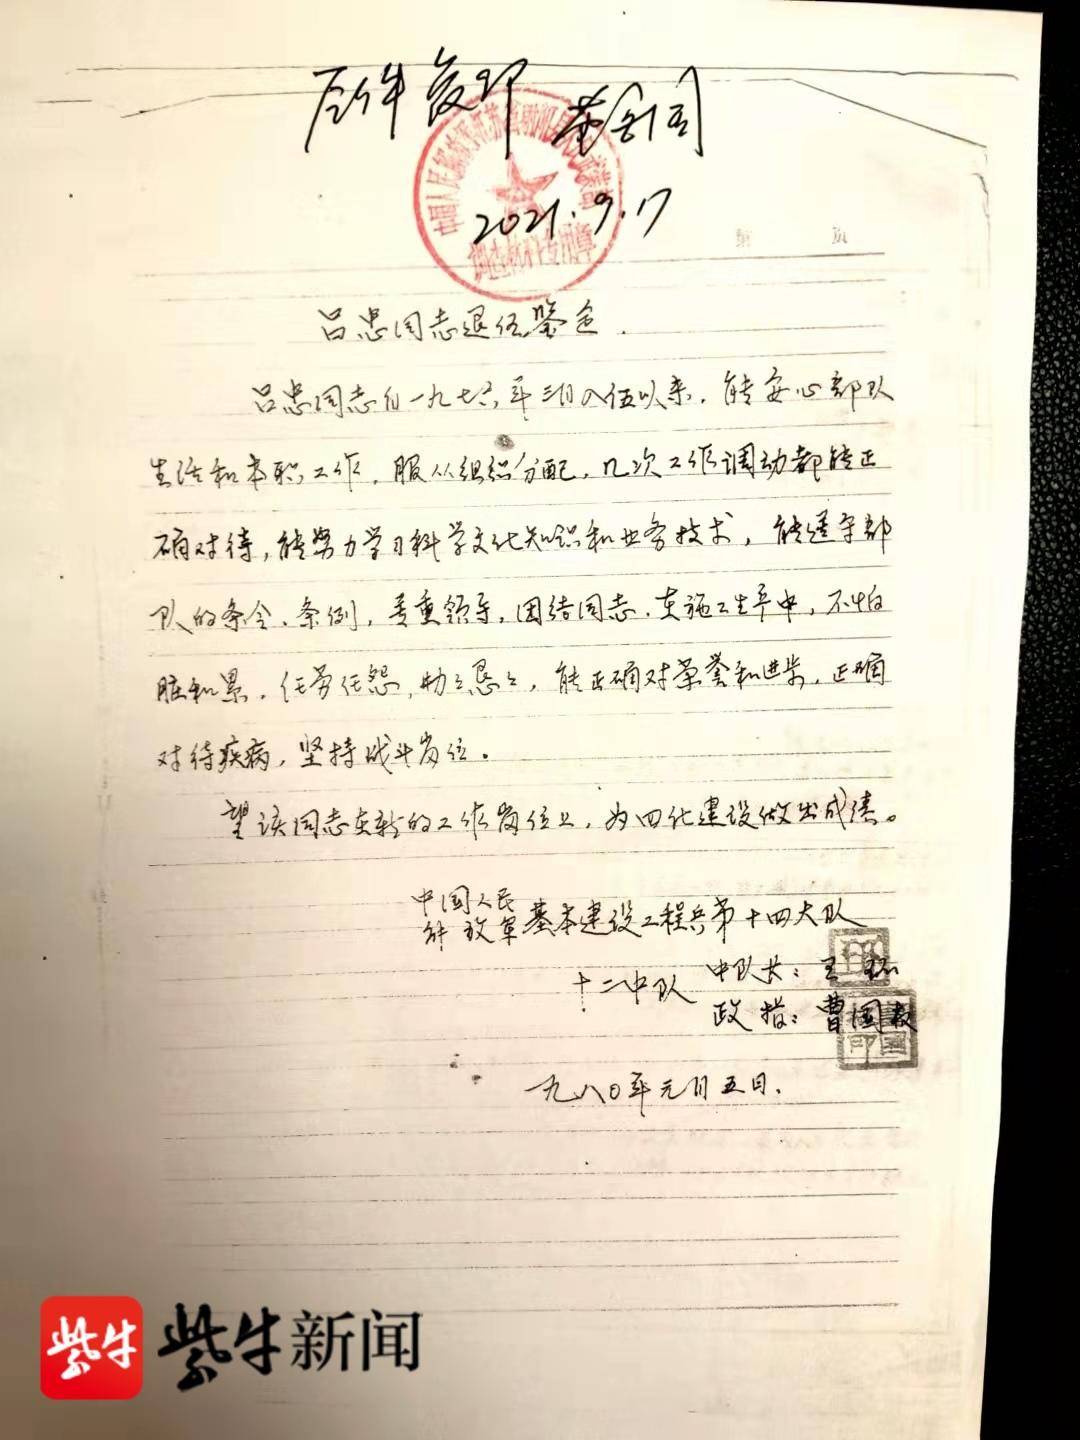 原件复印
2021.9.17
第 页
吕忠同志退伍鉴定.
吕忠同志自一九七六年三月入伍以来，能安心部队
生活和本职工作，服从组织分配，几次工作调动都能正
确对待，能努力学习科学文化知识和业务技术，能遵守部
队的条令、条例，尊重领导，团结同志，在施工生产中，不怕
脏和累，任劳任怨，勤勤恳恳，能正确对荣誉和进步，正确
对待疾病，坚持战斗岗位。
望该同志在新的工作岗位上，为四化建设做出成绩。
中国人民
解放军基本建设工程兵第十四大队
十二中队 中队长：王
政指：曹国
一九八〇年元月五日.
紫牛 紫牛新闻